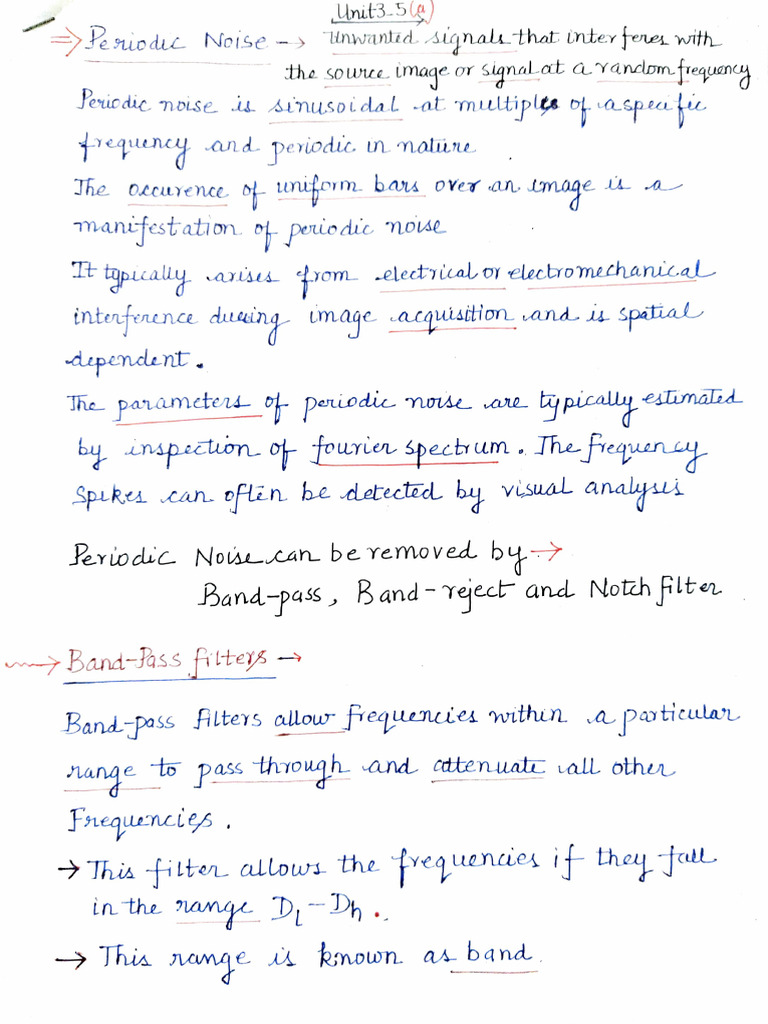 Unit3_5(a)
⇒ Periodic Noise → Unwanted signals that interferes with
the source image or signal at a random frequency
Periodic noise is sinusoidal at multiples of a specific
frequency and periodic in nature
The occurence of uniform bars over an image is a
manifestation of periodic noise
It typically arises from electrical or electromechanical
interference during image acquisition and is spatial
dependent.
The parameters of periodic noise are typically estimated
by inspection of fourier spectrum. The frequency
spikes can often be detected by visual analysis
Periodic Noise can be removed by →
Band-pass, Band-reject and Notch filter
→ Band-Pass filters →
Band-pass filters allow frequencies within a particular
range to pass through and attenuate all other
Frequencies.
→ This filter allows the frequencies if they fall
in the range Dl-Dh.
→ This range is known as band.